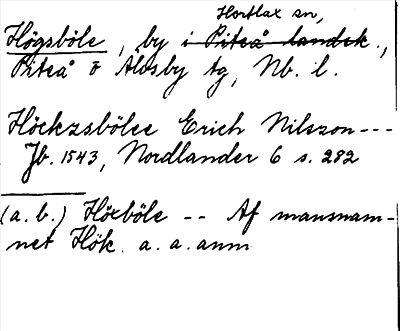 Hortlax sn,
Högsböle, by i Piteå landsk.,
Piteå o Älvsby tg, Nb. l.
Höckzsbölee Erich Nilszon ---
Jb. 1543, Nordlander 6 s. 282
(a. b.) Höxböle -- Af mansnam-
net Hök. a. a. anm